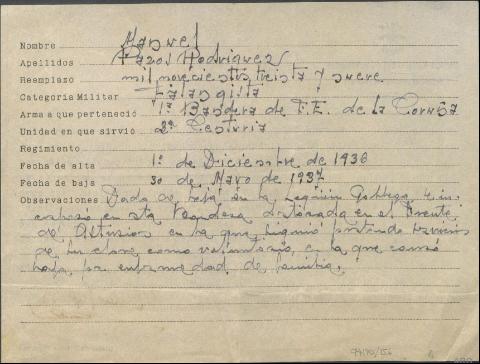 Nombre Manuel
Apellidos Pazos Rodriguez
Reemplazo mil novecientos treinta y nueve
Categoria Militar Falangista
Arma a que perteneció 1ª Bandera de F.E. de la Coruña
Unidad en que sirvió 2ª Centuria
Regimiento
Fecha de alta 1º de Diciembre de 1936
Fecha de baja 30 de Mayo de 1937
Observaciones Dado de baja en la Legión Gallega e in-
en esta Bandera destinada en el frente
de en la que siguió prestando servicios
de su clase como voluntario, en la que causó
baja, por enfermedad de familia.